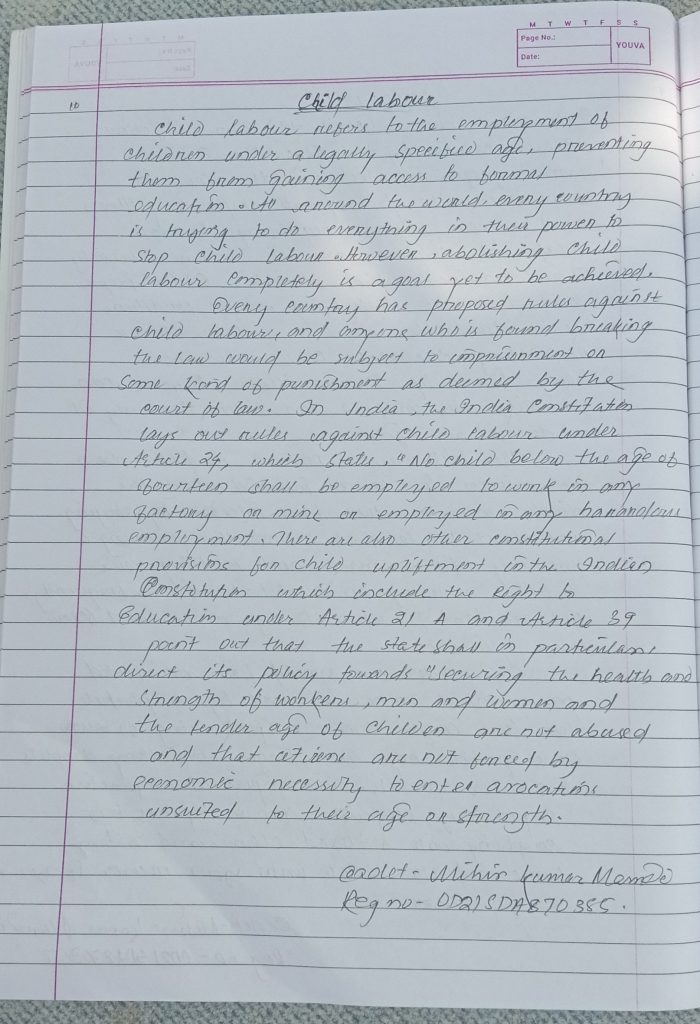 M T W T F S S
Page No.:
Date:
YOUVA
10
Child labour
Child labour refers to the employment of
children under a legally specified age, preventing
them from gaining access to formal
education. around the world, every country
is trying to do everything in their power to
stop child labour. However, abolishing child
labour completely is a goal yet to be achieved.
Every country has proposed rules against
child labour, and anyone who is found breaking
the law would be subject to imprisonment or
some kind of punishment as deemed by the
court of law. In India, the India Constitution
lays out rules against child labour under
Article 24, which states, "No child below the age of
fourteen shall be employed to work in any
factory or mine or employed in any
employment. There are also other constitutional
provisions for child upliftment in the Indian
Constitution which include the right to
Education under Article 21 A and Article 39
point out that the state shall in particular,
direct its policy towards "securing the health and
strength of workers, men and women and
the tender age of children are not abused
and that citizens are not forced by
economic necessity to enter avocations
unsuited to their age or strength.
Cadet - Mihir Kumar
Reg no - OD21SDA870385.